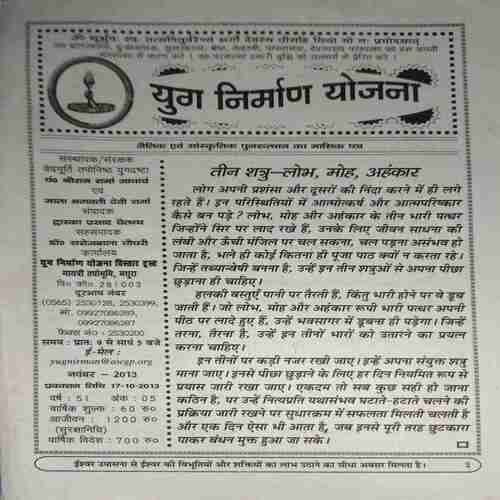 ॐ भूर्भुवः स्वः तत्सवितुर्वरेण्यं भर्गो देवस्य धीमहि धियो यो नः प्रचोदयात्
युग निर्माण योजना
नैतिक एवं सांस्कृतिक पुनरुत्थान का मासिक पत्र
संस्थापक/संरक्षक
वेदमूर्ति तपोनिष्ठ युगद्रष्टा
पं० श्रीराम शर्मा आचार्य
एवं
माता भगवती देवी शर्मा
संपादक
द्वारका प्रसाद चैतन्य
सहसंपादक
डॉ० सरोजबाला चौधरी
कार्यालय
युग निर्माण योजना विस्तार ट्रस्ट
गायत्री तपोभूमि, मथुरा
पि० को० 281003
दूरभाष नंबर
(0565) 2530128, 2530399,
मो. 09927086289,
09927086287
फैक्स नं० - 2530200
समय : प्रातः ९ से सायं ५ बजे
ई-मेल :
yugnirman@awgp.org
नवंबर – 2013
प्रकाशन तिथि 17-10-2013
वर्ष : 51 अंक : 05
वार्षिक शुल्क : 60 रु०
आजीवन : 1200 रु०
(सुरक्षानिधि)
वार्षिक विदेश : 700 रु०
तीन शत्रु—लोभ, मोह, अहंकार
लोग अपनी प्रशंसा और दूसरों की निंदा करने में ही लगे
रहते हैं। इन परिस्थितियों में आत्मोत्कर्ष और आत्मपरिष्कार
कैसे बन पड़े? लोभ, मोह और अहंकार के तीन भारी पत्थर
जिन्होंने सिर पर लाद रखे हैं, उनके लिए जीवन साधना की
लंबी और ऊँची मंजिल पर चल सकना, चल पड़ना असंभव हो
जाता है, भले ही कोई कितना ही पूजा पाठ क्यों न करता रहे।
जिन्हें तथ्यान्वेषी बनना है, उन्हें इन तीन शत्रुओं से अपना पीछा
छुड़ाना ही चाहिए।
हलकी वस्तुएँ पानी पर तैरती हैं, किंतु भारी होने पर वे डूब
जाती हैं। जो लोभ, मोह और अहंकार रूपी भारी पत्थर अपनी
पीठ पर लादे हुए हैं, उन्हें भवसागर में डूबना ही पड़ेगा। जिन्हें
तरना, तैरना है, उन्हें इन तीनों भारों को उतारने का प्रयत्न
करना चाहिए।
इन तीनों पर कड़ी नजर रखी जाए। इन्हें अपना संयुक्त शत्रु
माना जाए। इनसे पीछा छुड़ाने के लिए हर दिन नियमित रूप से
प्रयास जारी रखा जाए। एकदम तो सब कुछ सही हो जाना
कठिन है, पर उन्हें नित्यप्रति यथासंभव घटाते-हटाते चलने की
प्रक्रिया जारी रखने पर सुधारक्रम में सफलता मिलती चलती है
और एक दिन ऐसा भी आता है, जब इनसे पूरी तरह छुटकारा
पाकर बंधन मुक्त हुआ जा सके।
ईश्वर उपासना से ईश्वर की विभूतियों और शक्तियों का लाभ उठाने का सीधा अवसर मिलता है।